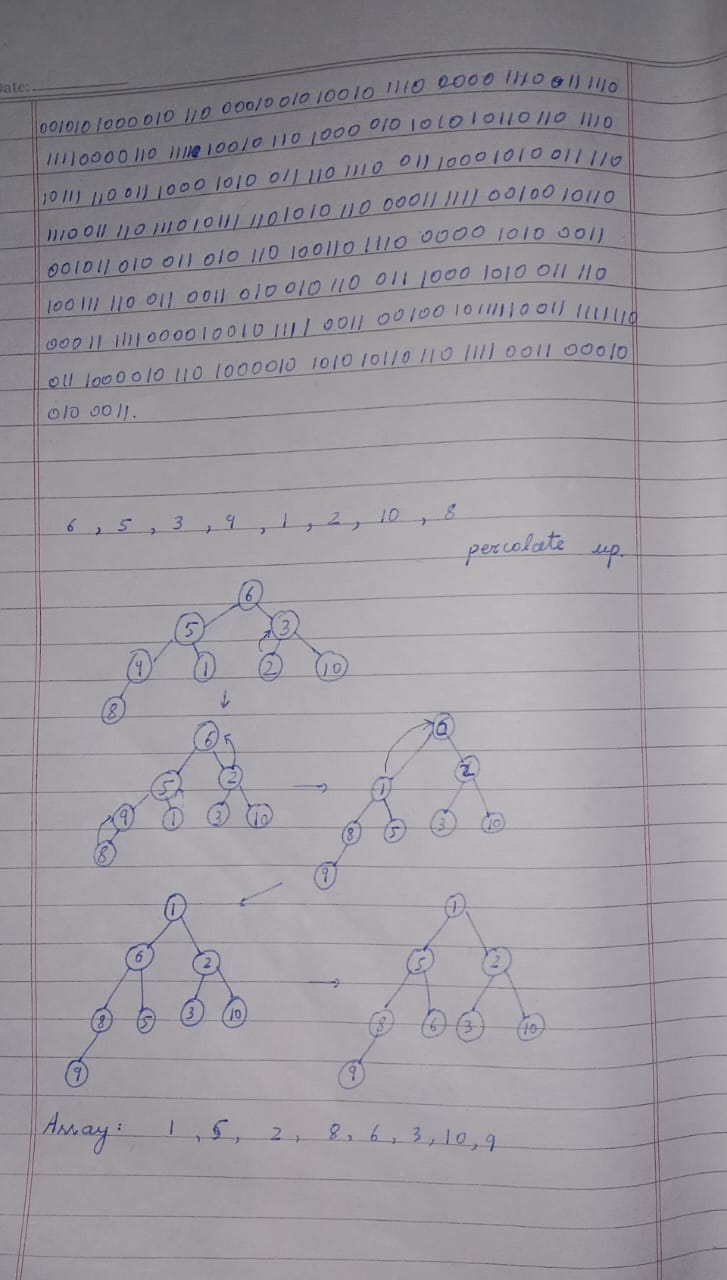 Date:
001010 1000 010 110 00010 010 10010 1110 0000 1110 011 1110
11110000 110 1111 10010 110 1000 010 1010 10110 110 1110
10111 110 011 1000 1010 011 110 1110 011 1000 1010 011 110
1110 011 110 1110 10111 1101010 110 00011 1111 00100 10110
001011 010 011 010 110 100110 1110 0000 1010 0011
100111 110 011 0011 010 010 110 011 1000 1010 011 110
00011 1111 0000 10010 1111 0011 00100 1011110 011 1111110
011 1000010 110 1000010 1010 10110 110 1111 0011 00010
010 0011.
6 , 5 , 3 , 9 , 1 , 2 , 10 , 8
percolate up.
6
5 3
9 1 2 10
8
6 6
5 2 1 2
9 1 3 10 8 5 3 10
8 9
1 1
6 2 5 2
8 5 3 10 8 6 3 10
9 9
Array: 1 , 5, 2 , 8, 6, 3, 10, 9